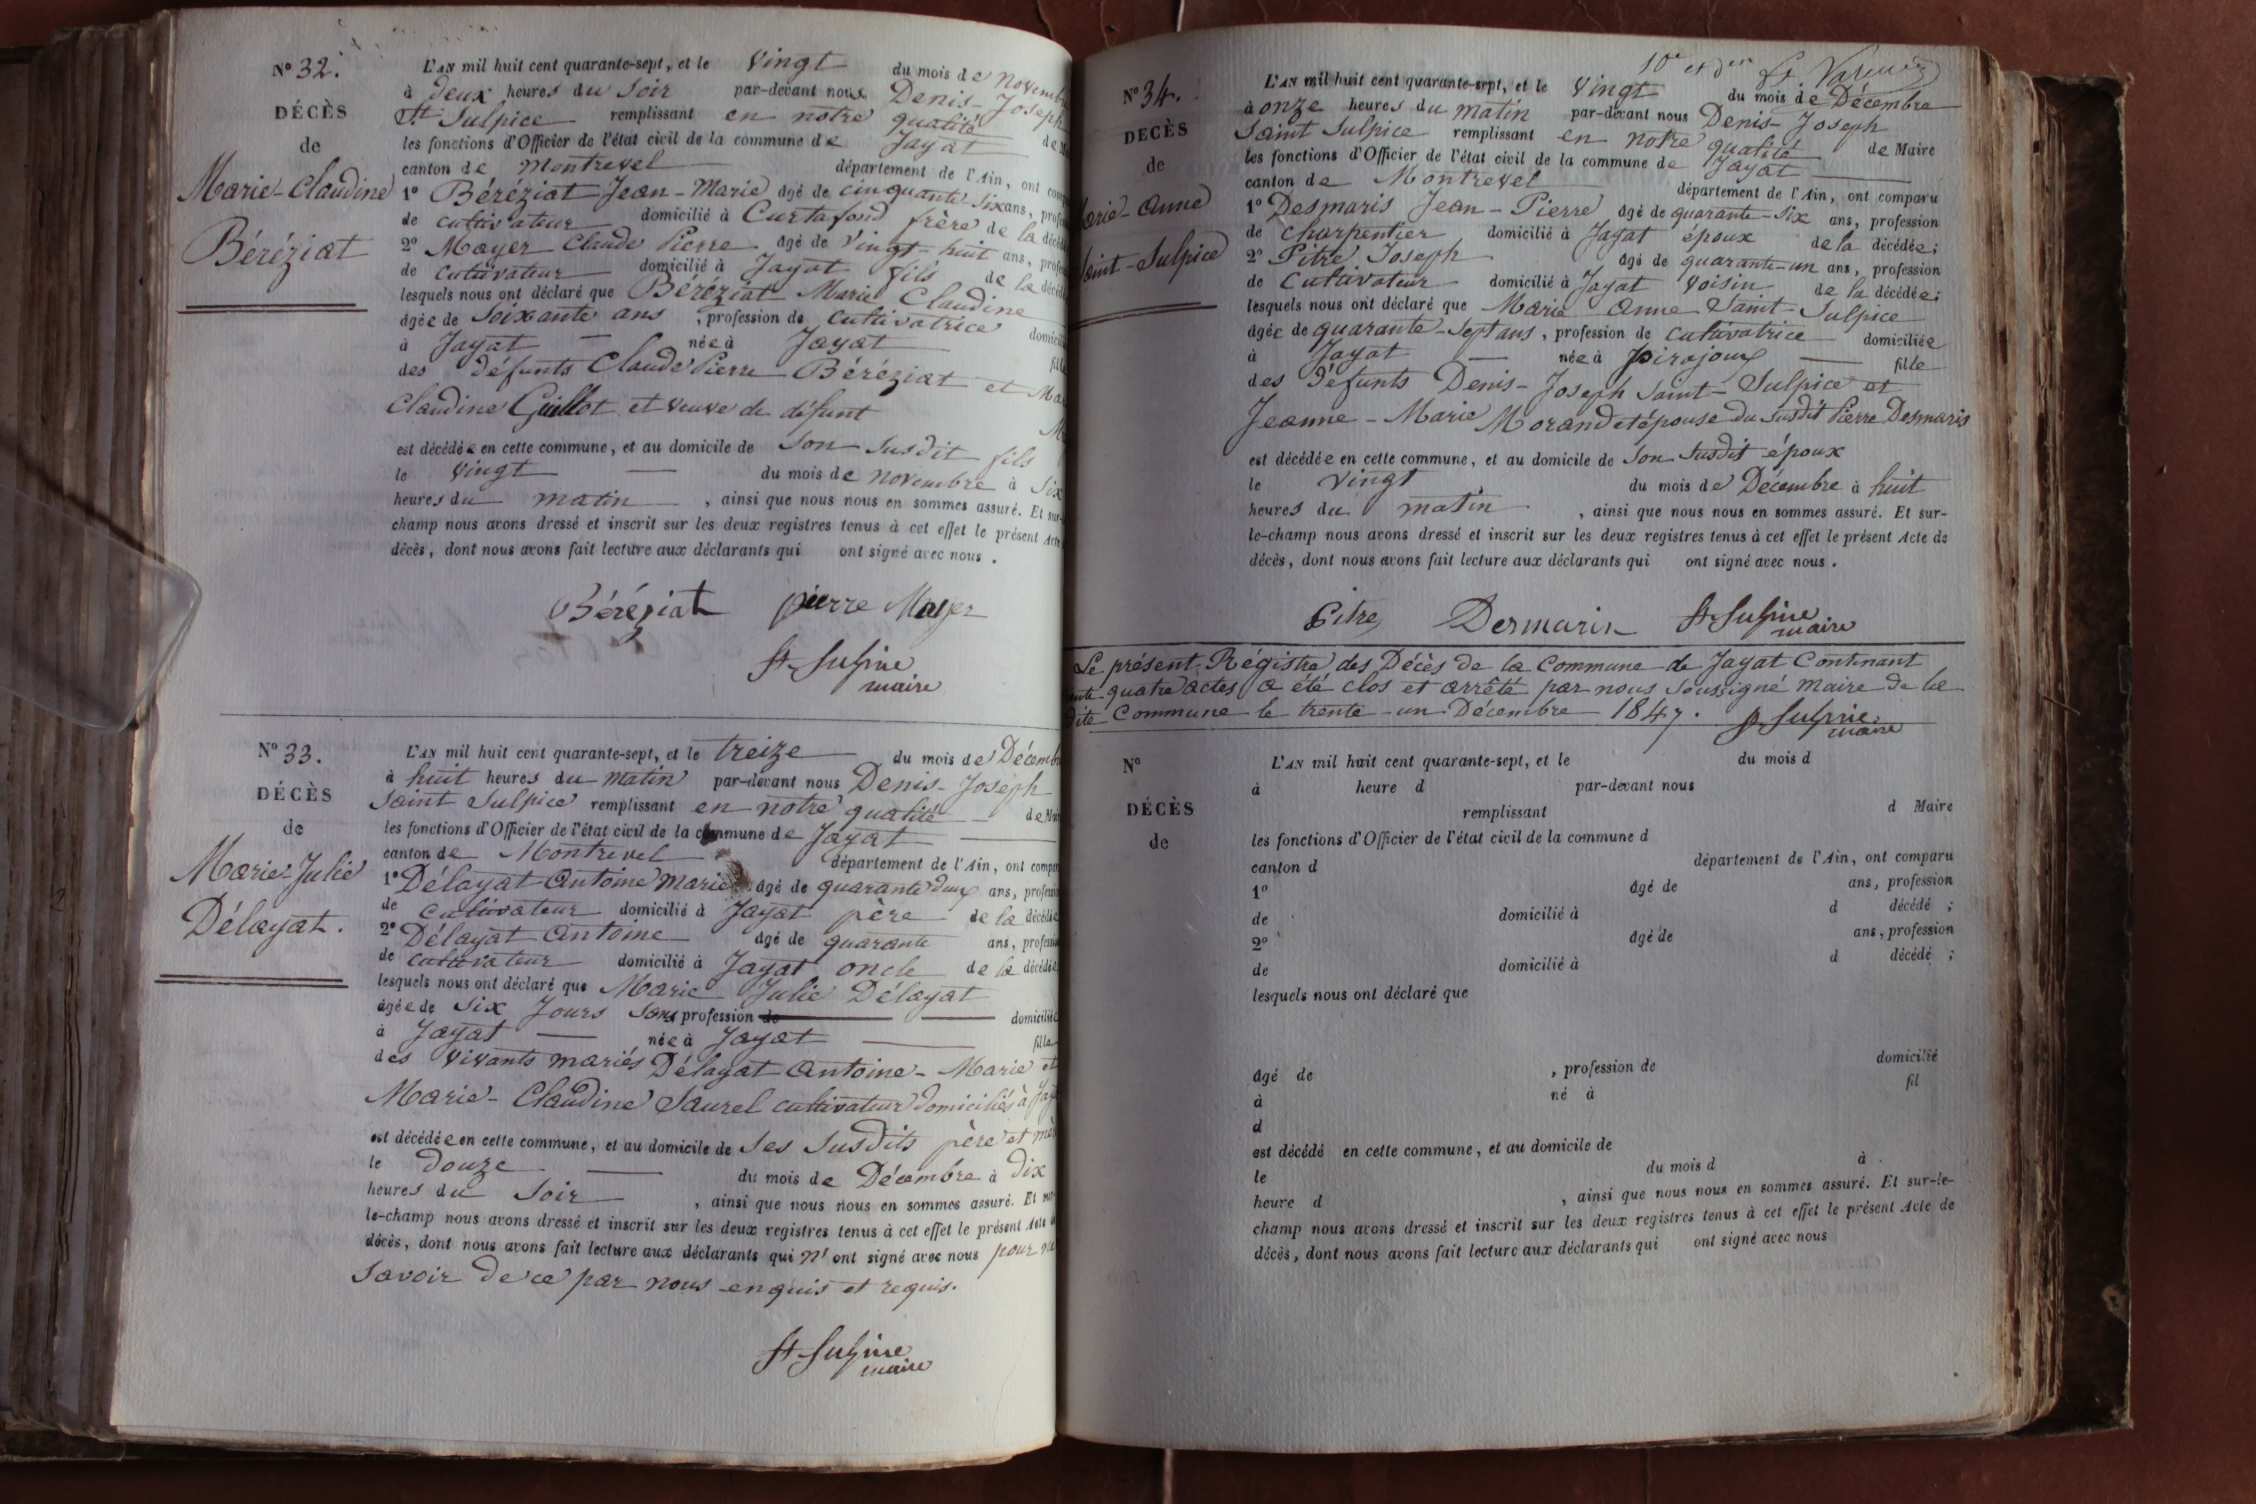 N° 32.
DÉCÈS
de
Marie-Claudine
Béréziat
L'AN mil huit cent quarante-sept, et le vingt du mois de novembre
à deux heures du Soir par-devant nous Denis-Joseph
St Sulpice remplissant en notre qualité de
les fonctions d'Officier de l'état civil de la commune de Jayat
canton de Montrevel département de l'Ain, ont
1° Béréziat Jean-Marie agé de cinquante-six ans,
de cultivateur domicilié à Curtafond frère de la
2° Mayer Claude Pierre agé de vingt-huit ans,
de cultivateur domicilié à Jayat fils de la
lesquels nous ont déclaré que Béréziat Marie Claudine
agée de Soixante ans, profession de cultivatrice
à Jayat née à Jayat
des défunts Claude Pierre Béréziat et
Claudine Guillot et veuve de défunt
est décédée en cette commune, et au domicile de Son Susdit fils
le vingt du mois de novembre à Six
heures du matin, ainsi que nous nous en sommes assuré. Et sur-
champ nous avons dressé et inscrit sur les deux registres tenus à cet effet le présent Acte
décès, dont nous avons fait lecture aux déclarants qui ont signé avec nous.
Béréziat pierre Mayer
St Sulpice
maire
N° 33.
DÉCÈS
de
Marie-Julie
Délayat.
L'AN mil huit cent quarante-sept, et le treize du mois de Décembre
à huit heures du matin par-devant nous Denis-Joseph
Saint Sulpice remplissant en notre qualité de
les fonctions d'Officier de l'état civil de la commune de Jayat
canton de Montrevel département de l'Ain, ont
1° Délayat Antoine Marie agé de quarante deux ans,
de cultivateur domicilié à Jayat père de la décédée
2° Délayat Antoine agé de quarante ans,
de cultivateur domicilié à Jayat oncle de la décédée
lesquels nous ont déclaré que Marie Julie Délayat
agée de Six Jours Sans profession de domiciliée
à Jayat née à Jayat fille
des vivants mariés Délayat Antoine-Marie et
Marie-Claudine Saurel cultivateur domiciliés à
est décédée en cette commune, et au domicile de Ses Susdits père et
le douze du mois de Décembre à dix
heures du Soir, ainsi que nous nous en sommes assuré. Et sur-
le-champ nous avons dressé et inscrit sur les deux registres tenus à cet effet le présent Acte de
décès, dont nous avons fait lecture aux déclarants qui n'ont signé avec nous pour ne
Savoir de ce par nous enquis et requis.
St Sulpice
maire
10e et der
N° 34.
DECÈS
de
Anne
Sulpice
L'AN mil huit cent quarante-sept, et le vingt du mois de Décembre
à onze heures du matin par-devant nous Denis-Joseph
Saint Sulpice remplissant en notre qualité de Maire
les fonctions d'Officier de l'état civil de la commune de Jayat
canton de Montrevel département de l'Ain, ont comparu
1° Desmaris Jean-Pierre agé de quarante-six ans, profession
de charpentier domicilié à Jayat époux de la décédée;
2° Pitre Joseph agé de quarante-un ans, profession
de Cultivateur domicilié à Jayat voisin de la décédée;
lesquels nous ont déclaré que Marie Anne Saint-Sulpice
agée de quarante-Sept ans, profession de cultivatrice domiciliée
à Jayat née à pirajoux fille
des défunts Denis-Joseph Saint-Sulpice et
Jeanne-Marie Morand et épouse du susdit Pierre Desmaris
est décédée en cette commune, et au domicile de Son Susdit époux
le vingt du mois de Décembre à huit
heures du matin, ainsi que nous nous en sommes assuré. Et sur-
le-champ nous avons dressé et inscrit sur les deux registres tenus à cet effet le présent Acte de
décès, dont nous avons fait lecture aux déclarants qui ont signé avec nous.
Pitre Desmaris St Sulpice
maire
Le présent Régistre des Décès de la Commune de Jayat Contenant
quatre actes a été clos et arrêté par nous Soussigné Maire de la
dite Commune le trente-un Décembre 1847. St Sulpice
maire
N°
DÉCÈS
de
L'AN mil huit cent quarante-sept, et le du mois d
à heure d par-devant nous
remplissant d Maire
les fonctions d'Officier de l'état civil de la commune d
canton d département de l'Ain, ont comparu
1° agé de ans, profession
de domicilié à d décédé ;
2° agé de ans, profession
de domicilié à d décédé ;
lesquels nous ont déclaré que
agé de , profession de domicilié
à né à fil
d
est décédé en cette commune, et au domicile de
le du mois d à
heure d , ainsi que nous nous en sommes assuré. Et sur-le-
champ nous avons dressé et inscrit sur les deux registres tenus à cet effet le présent Acte de
décès, dont nous avons fait lecture aux déclarants qui ont signé avec nous